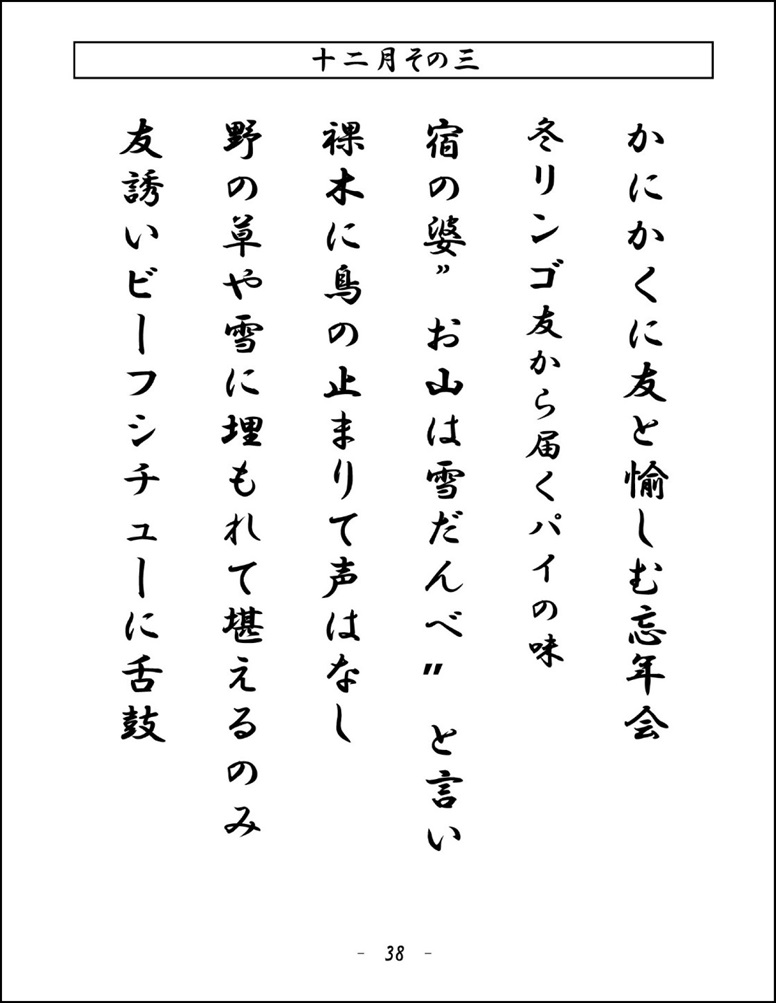 十二月その三
かにかくに友と愉しむ忘年会
冬リンゴ友から届くパイの味
宿の婆”お山は雪だんべ”と言い
裸木に鳥の止まりて声はなし
野の草や雪に埋もれて堪えるのみ
友誘いビーフシチューに舌鼓
- 38 -